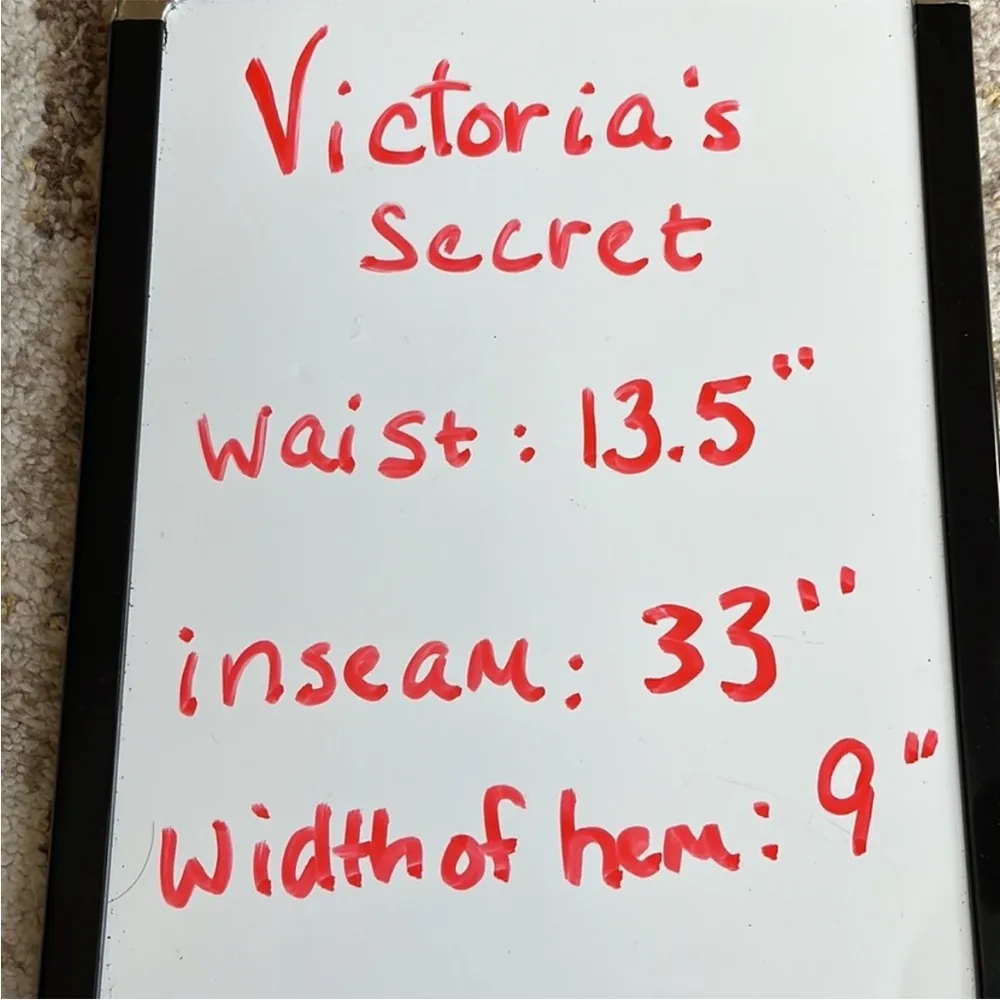 Victoria's
Secret
waist: 13.5"
inseam: 33"
width of hem: 9"